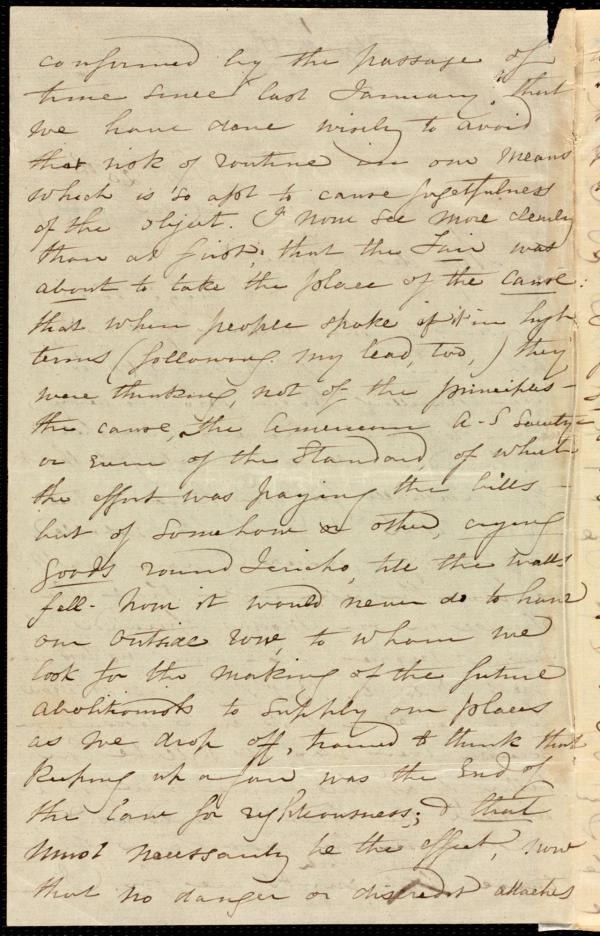 confirmed by the passage of
time since last January, that
we have done wisely to avoid
that risk of routine in our means
which is so apt to cause forgetfulness
of the object. I now see more clearly
than at first, that the Fair was
about to take the place of the cause:
that when people spoke of it in high
terms (following my lead, too,) they
were thinking, not of the principles -
the cause, the American A-S Society -
or even of the Standard, of which
the effort was paying the bills -
but of somehow or other, crying
goods round Jericho, till the walls
fell. Now it would never do to have
our outside row, to whom we
look for the making of the future
abolitionists to supply our places
as we drop off, trained to think that
keeping up a fair was the end of
the law for righteousness; & that
must necessarily be the effect, now
that no danger or discredit attaches